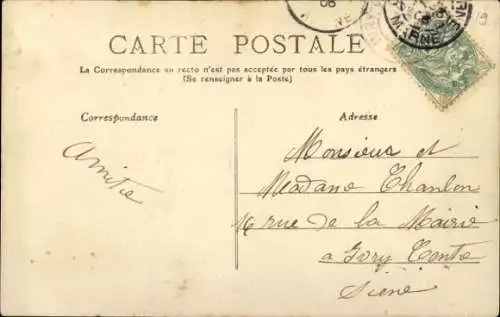 19
MARNE
CARTE POSTALE
La Correspondance au recto n'est pas acceptée par tous les pays étrangers
(Se renseigner à la Poste)
Correspondance
Adresse
Amitié
Monsieur et
Madame Chanlon
16 rue de la Mairie
a Ivry Conte
Siene